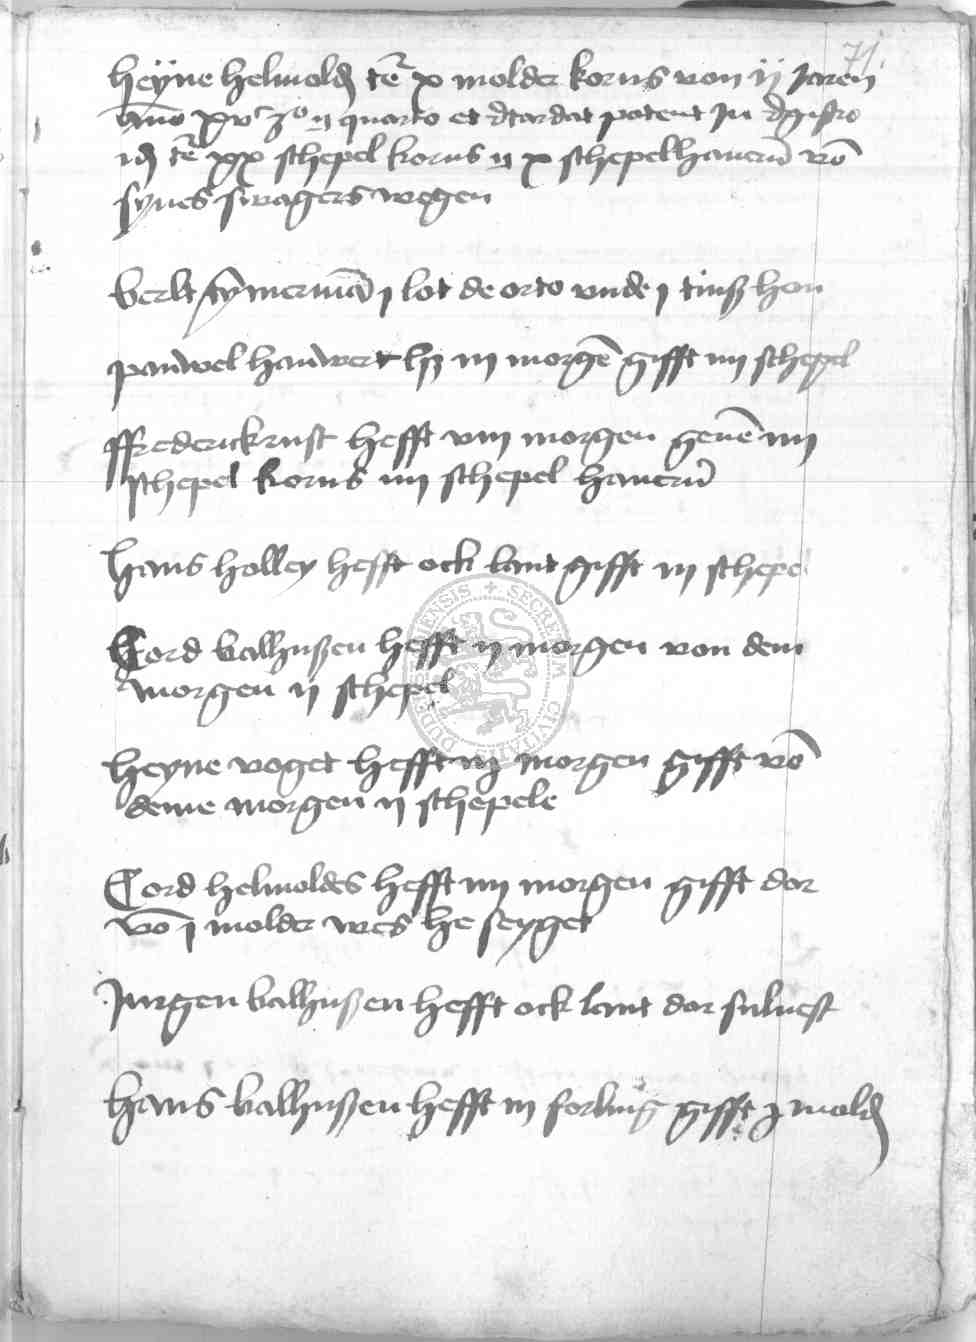 71.
Heyne helmold tē x molder korns von ij Jaren
Anno xvc 3o ij quarto et dtardat patent In Rgistro
id tē xx schepel korns ij x schepel hauern vō
synes swagers wegen
Berlt tymerman j lot de orto vnde j tinß hon
pauwel hauwert iij morgē gifft iiij schepel
ffrederick rust hefft viij morgen geuē iiij
schepel korns iiij schepel hauern
Hans holley hefft ock lant gifft iij schepe
Cord balhußen hefft ij morgen von dem
morgen ij schepel
Heyne voget hefft morgen gifft vō
deme morgen ij schepele
Cord helmoldes hefft iiij morgen gifft dor
vō j molder wes he seyget
Jurgen balhußen hefft ock lant dor suluest
Hans balhußen hefft iij forling gifft j mold
SECRETUM CIVITATIS DUDERSTADENSIS